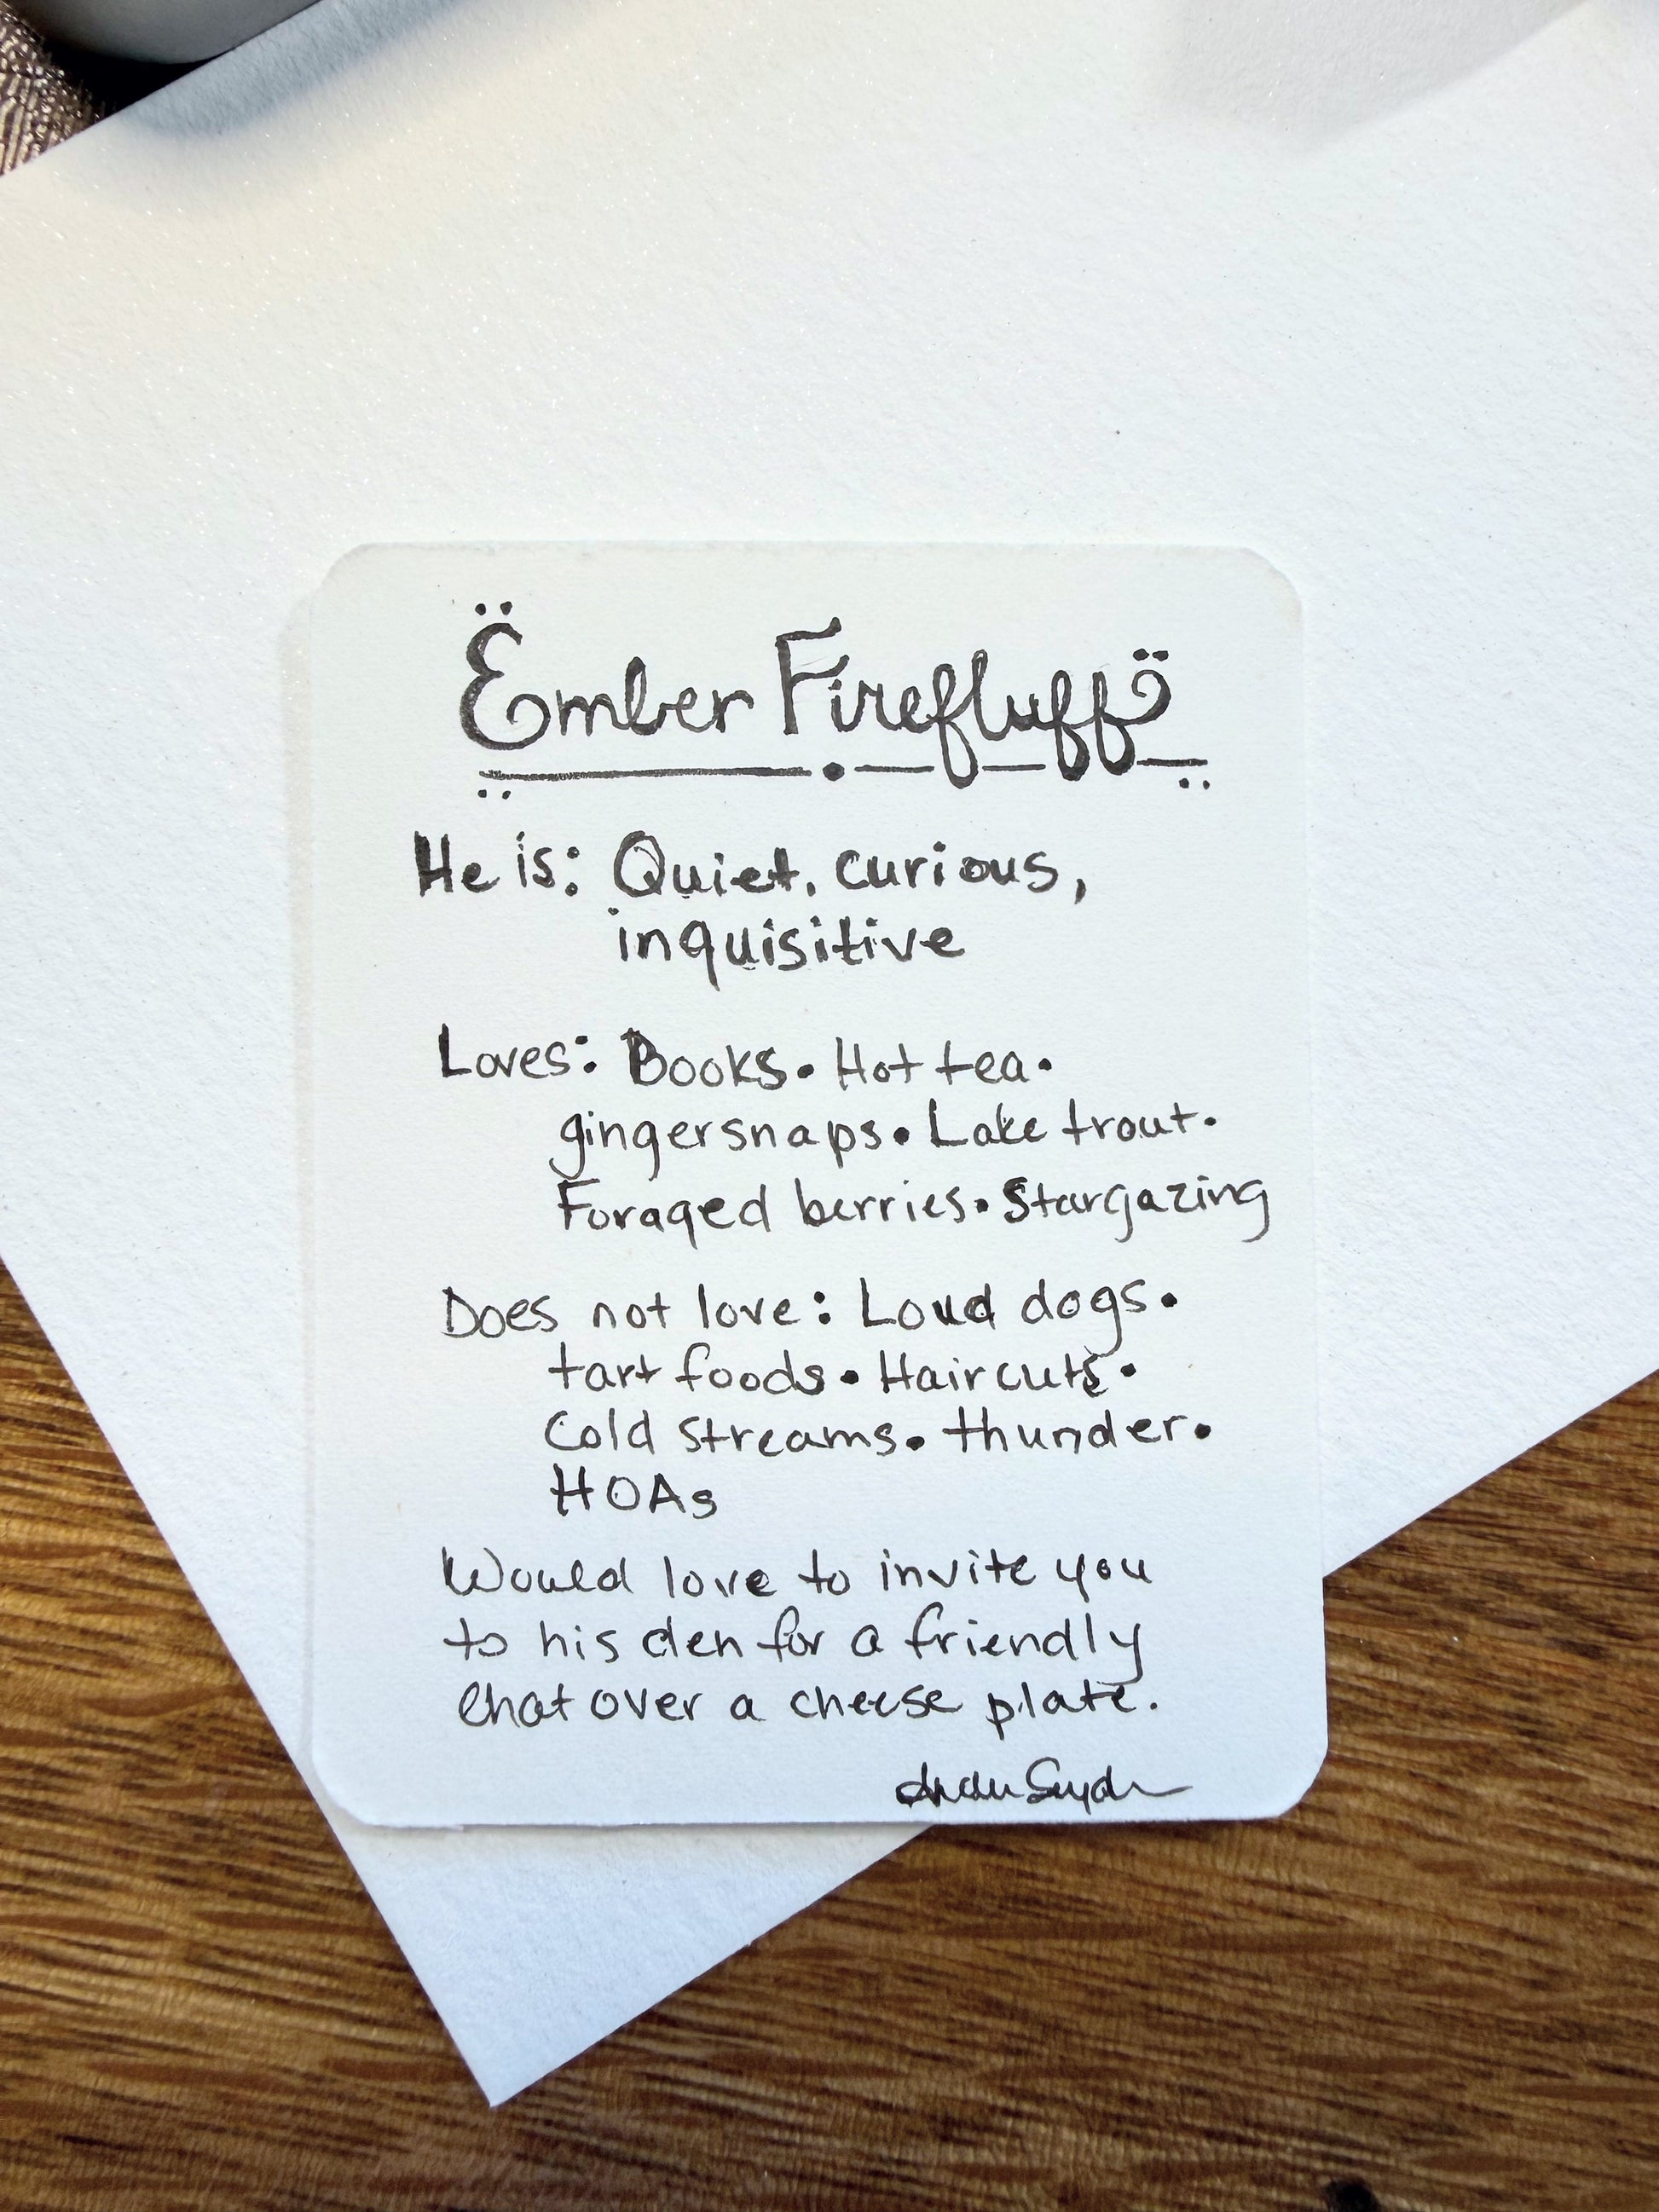 Ember Firefluff
He is: Quiet, curious,
inquisitive
Loves: Books • Hot tea •
gingersnaps • Lake trout •
Foraged berries • Stargazing
Does not love: Loud dogs •
tart foods • Haircuts •
Cold streams • thunder •
HOAs
Would love to invite you
to his den for a friendly
chat over a cheese plate.